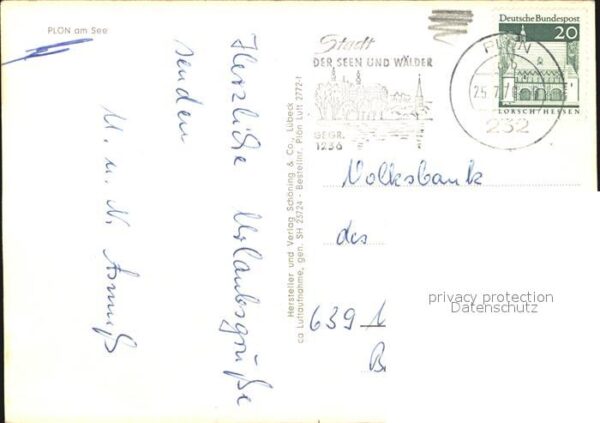 PLÖN am See
Herzliche Urlaubsgrüße
senden
U. u. N.
Hersteller und Verlag Schöning & Co., Lübeck
ca Luftaufnahme, gen. SH 25724 - Bestellnr. Plön Luft 2772-1
Stadt
DER SEEN UND WÄLDER
GEGR.
1236
PLÖN
25.7.7
232
Deutsche Bundespost
20
LORSCH/HESSEN
Volksbank
des
6391
B
privacy protection
Datenschutz